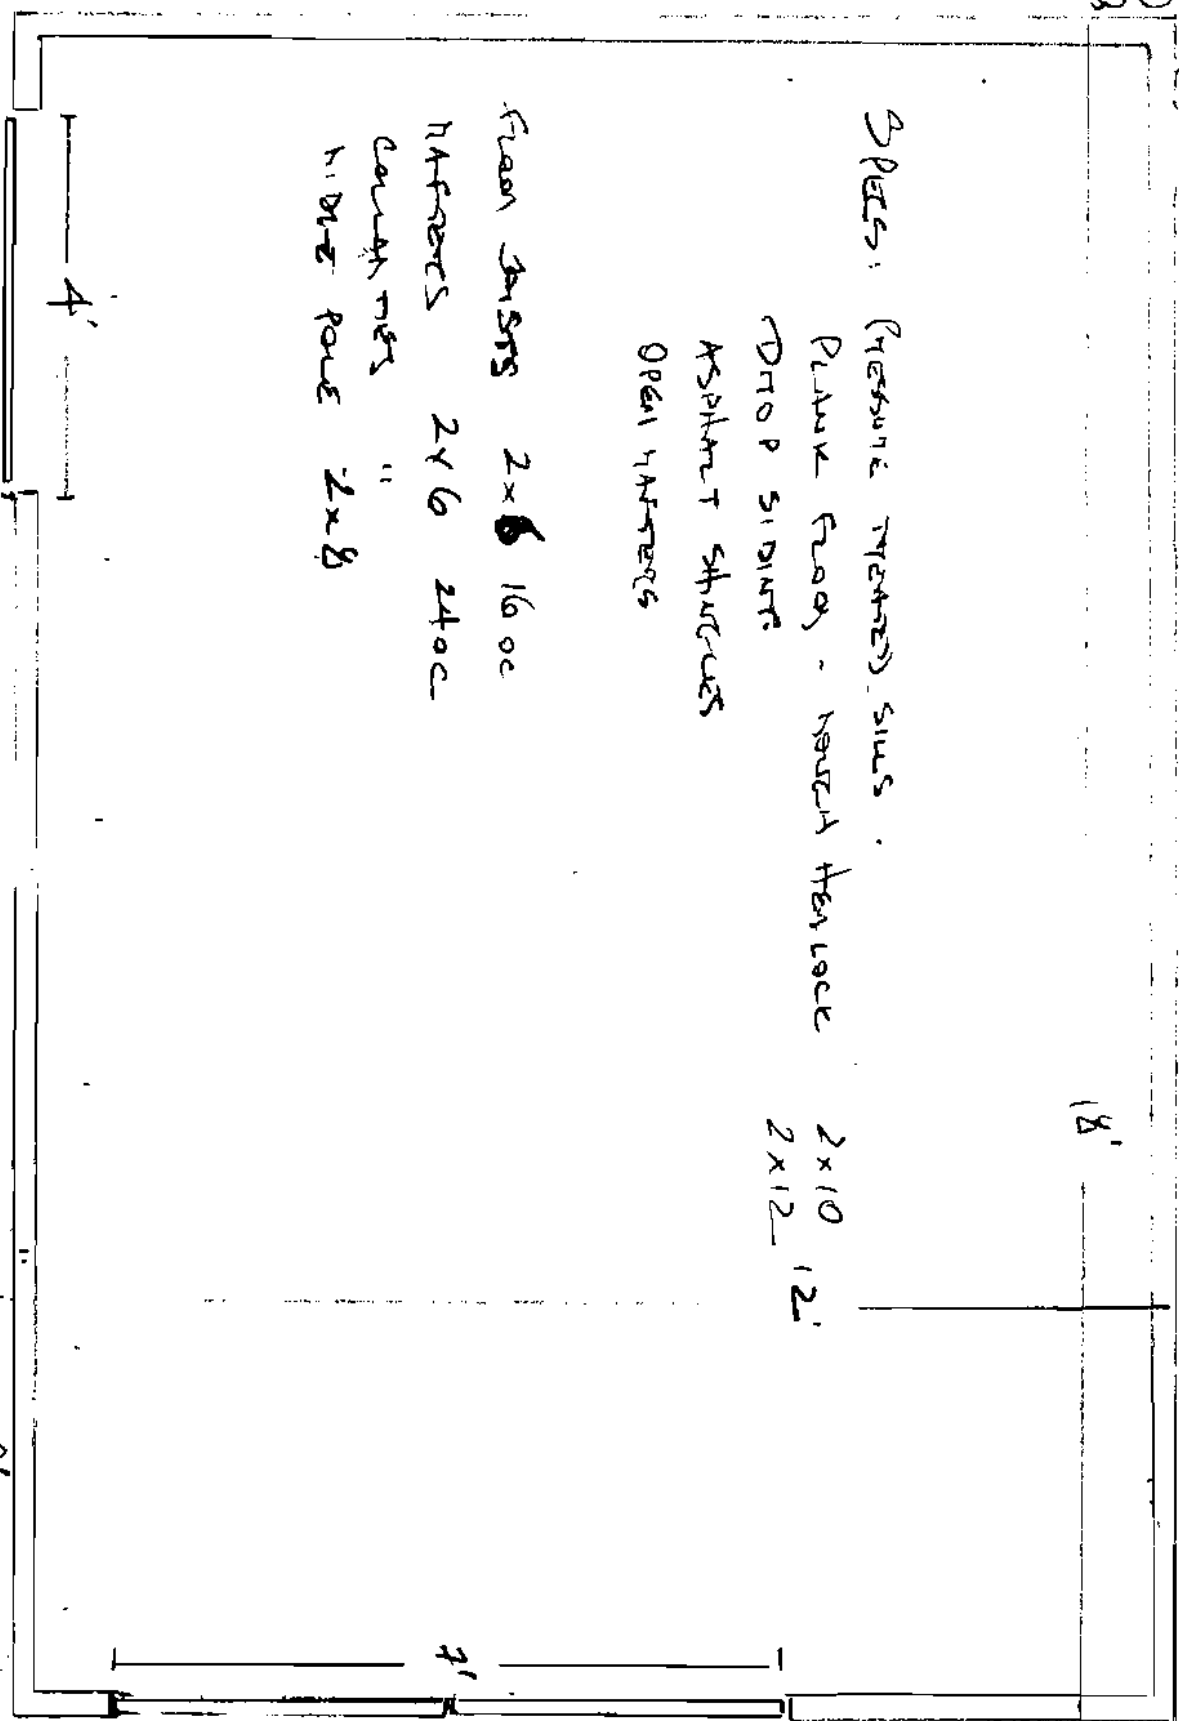 SPECS: PRESSURE TREATED SILLS.
PLANK FLOOR - ROUGH HEMLOCK 2x10
DROP SIDING 2x12 12'
ASPHALT SHINGLES
OPEN RAFTERS
FLOOR JOISTS 2x6 16 oc
RAFTERS 2x6 24 oc
COLLAR TIES "
RIDGE POLE 2x8
18'
4'
7'